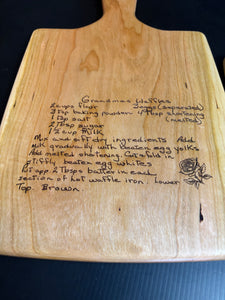 Grandmas Waffles
2 cups flour 3 eggs (separated)
3 tsp baking powder 4 Tbsp shortening
1 tsp salt (melted)
2 Tbsp sugar
1 1/2 cup Milk
Mix and sift dry ingredients Add
milk gradually with beaten egg yolks
Add melted shortening. Cut & fold in
stiffly beaten egg whites
2 Tbsps batter in each
section of hot waffle iron. Lower
Top. Brown.